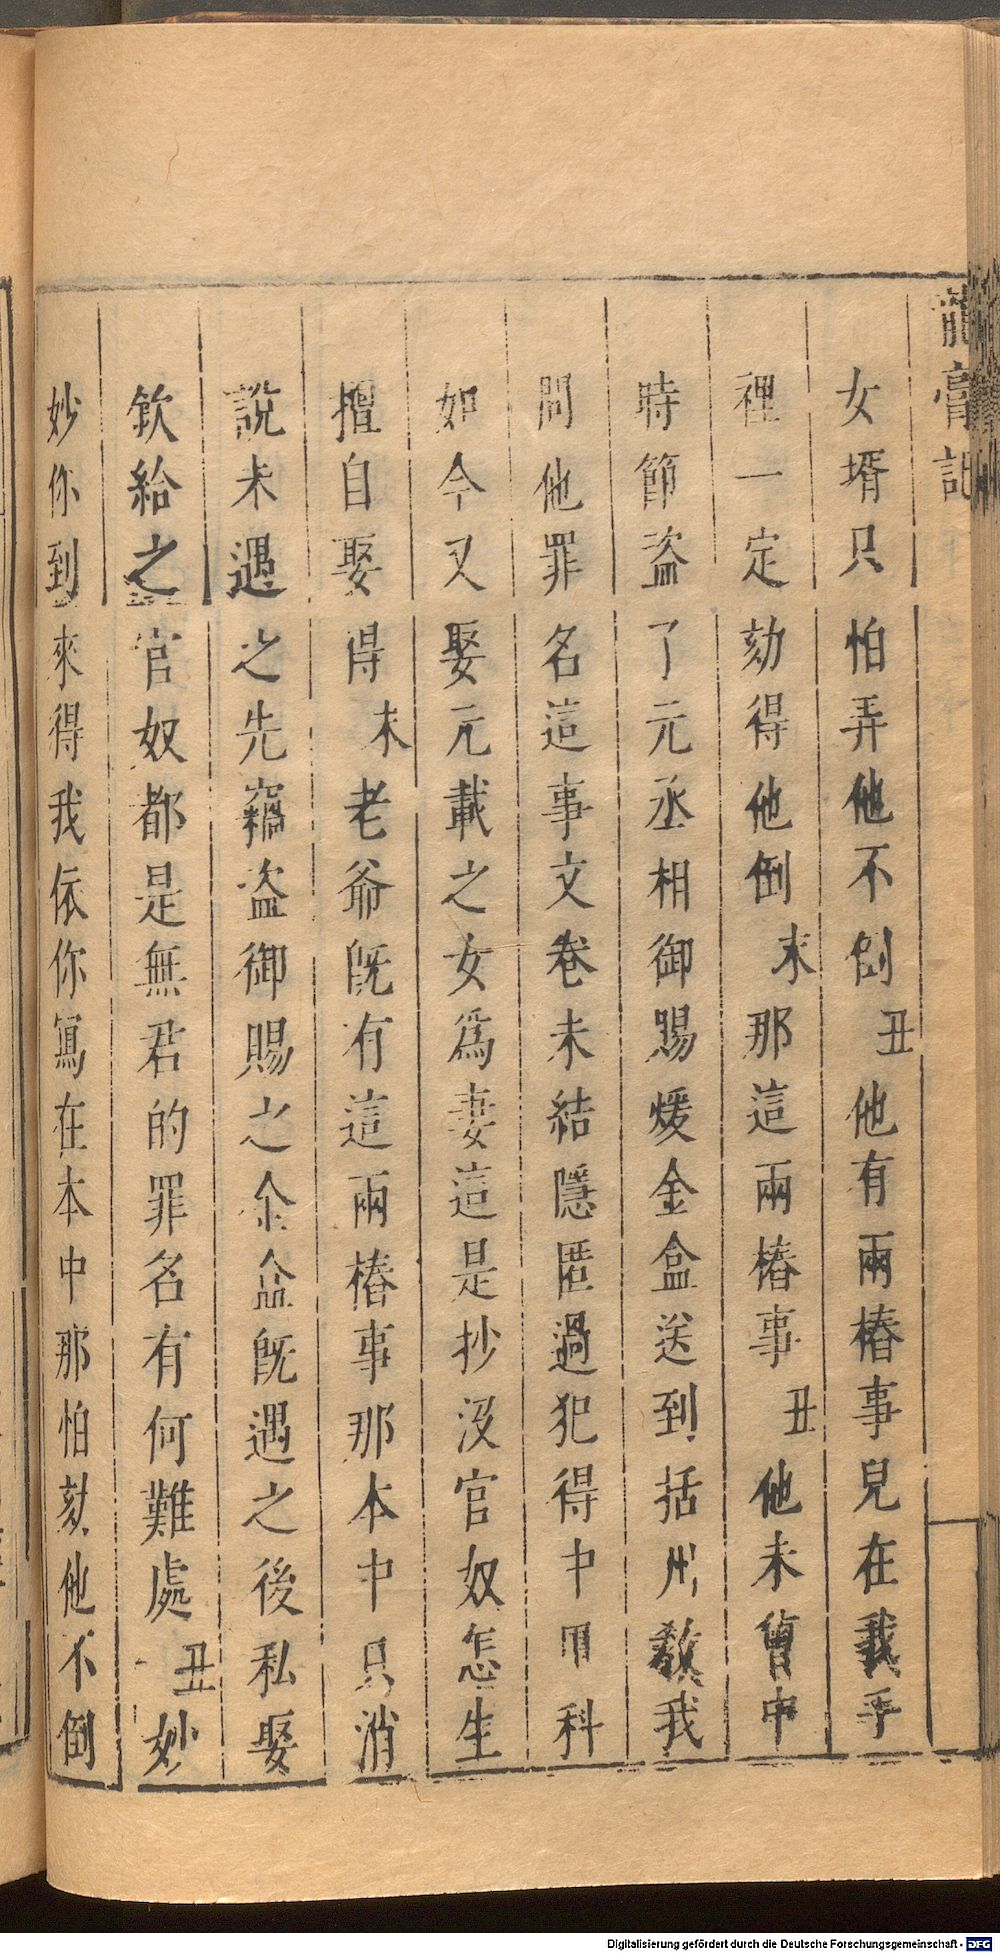 龍膏記
女壻只怕弄他不倒丑他有兩樁事兒在我手
裡一定劾得他倒末那這兩樁事丑他未曾中
時節盜了元丞相御賜煖金盒送到括州教我
問他罪名這事文卷未結隱匿過犯得中甲科
如今又娶元載之女爲妻這是抄沒官奴怎生
擅自娶得末老爺旣有這兩樁事那本中只消
說未遇之先竊盜御賜之金盒旣遇之後私娶
欽給之官奴都是無君的罪名有何難處丑妙
妙你到來得我依你寫在本中那怕劾他不倒
Digitalisierung gefördert durch die Deutsche Forschungsgemeinschaft - DFG